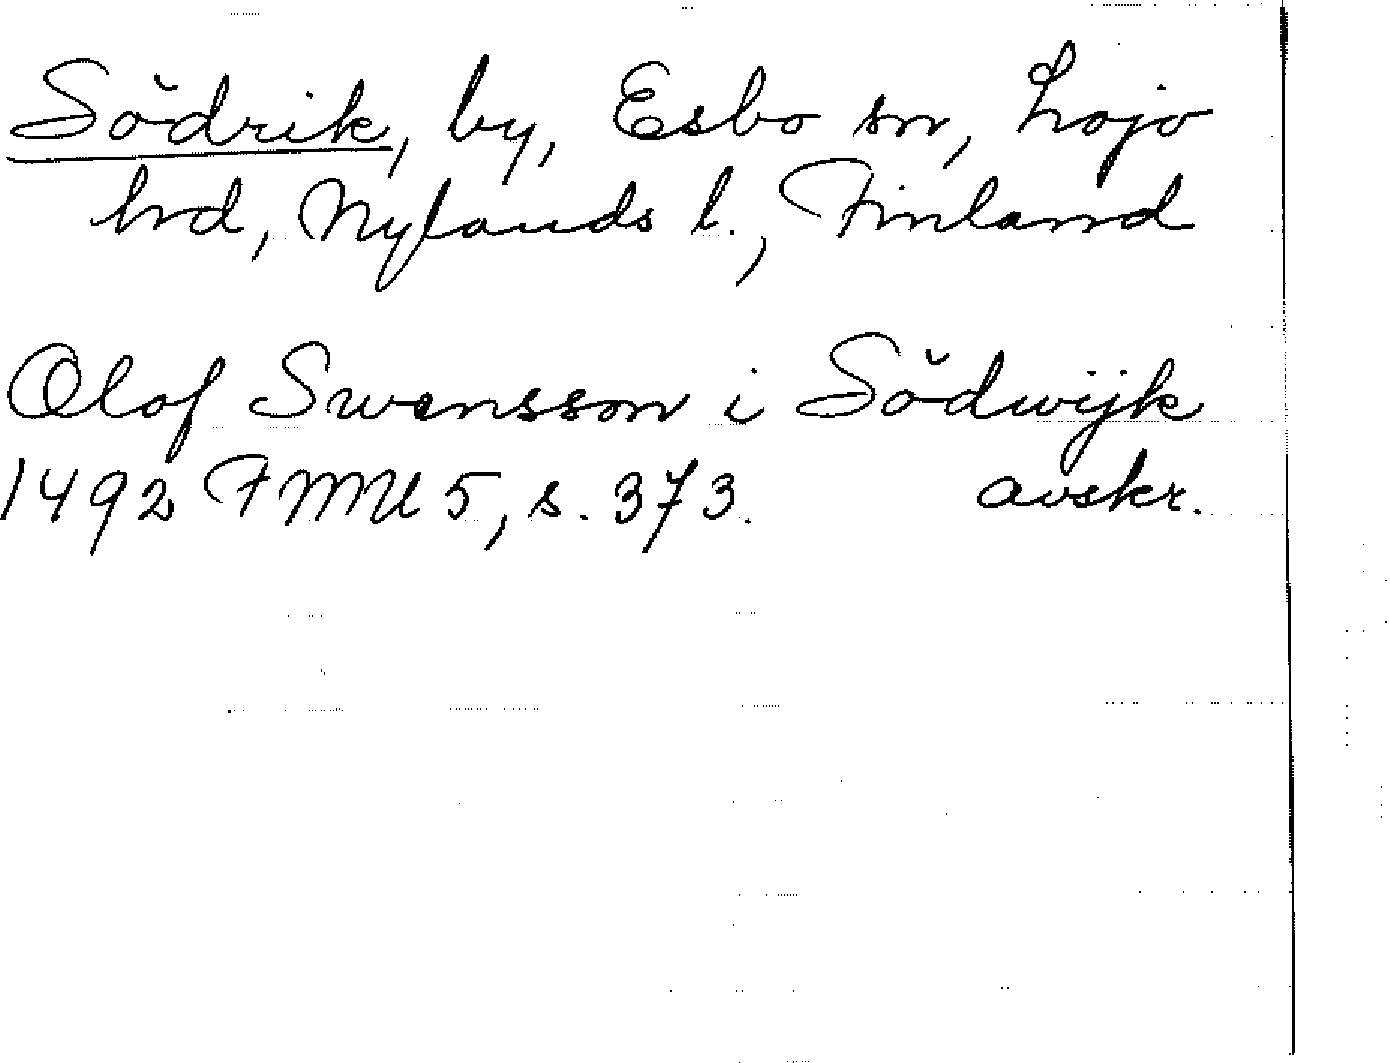 Södrik, by, Esbo sn, Lojo
hrd, Nylands l., Finland
Olof Swensson i Södwijk
1492 FMU 5, s. 373. avskr.